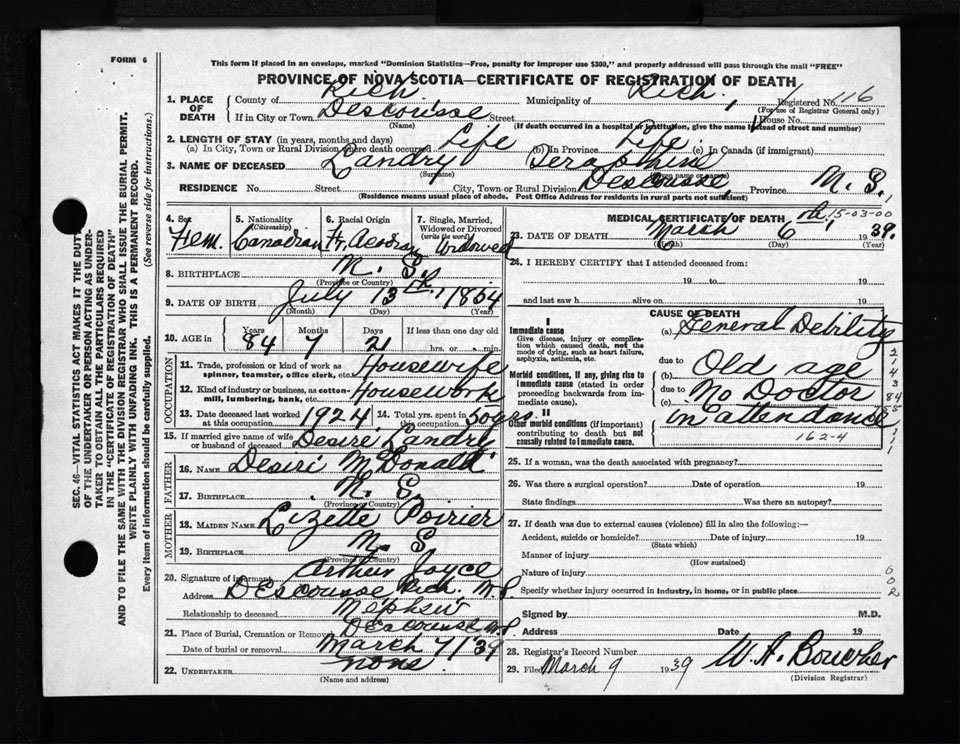 FORM 6
This form if placed in an envelope, marked "Dominion Statistics—Free, penalty for improper use $300," and properly addressed will pass through the mail "FREE"
PROVINCE OF NOVA SCOTIA—CERTIFICATE OF REGISTRATION OF DEATH
1. PLACE OF DEATH
County of Rich Municipality of Rich. Registered No. 116
(For use of Registrar General only)
If in City or Town Descousse Street House No.
(Name) (If death occurred in a hospital or institution, give the name instead of street and number)
2. LENGTH OF STAY (in years, months and days)
(a) In City, Town or Rural Division where death occurred Life (b) In Province Life (c) In Canada (if immigrant)
3. NAME OF DECEASED Landry Seraphine
(Surname)
RESIDENCE No. Street City, Town or Rural Division Descousse, Province N. S.
(Residence means usual place of abode. Post Office Address for residents in rural parts not sufficient)
4. Sex Fem.
5. Nationality (Citizenship) Canadian
6. Racial Origin Fr. Acadian
7. Single, Married, Widowed or Divorced (write the word) Widowed
8. BIRTHPLACE N. S.
(Province or Country)
9. DATE OF BIRTH July 13th, 1854
(Month) (Day) (Year)
10. AGE in Years Months Days If less than one day old
84 7 21 hrs. or min.
OCCUPATION
11. Trade, profession or kind of work as spinner, teamster, office clerk, etc. Housewife
12. Kind of industry or business, as cotton-mill, lumbering, bank, etc. Housework
13. Date deceased last worked at this occupation 1924
14. Total yrs. spent in this occupation 50 yrs.
15. If married give name of wife or husband of deceased Desire Landry
FATHER
16. Name Desiri McDonald
17. Birthplace N. S.
(Province or Country)
MOTHER
18. Maiden Name Lizette Poirier
19. Birthplace N. S.
(Province or Country)
20. Signature of informant Arthur Joyce
Address Descousse Rich. N.S.
Relationship to deceased Nephew
21. Place of Burial, Cremation or Removal Descousse N.S.
Date of burial or removal March 7/39
22. UNDERTAKER none
(Name and address)
MEDICAL CERTIFICATE OF DEATH
15-03-00
23. DATE OF DEATH March 6th, 1939.
(Month) (Day) (Year)
24. I HEREBY CERTIFY that I attended deceased from:
19 to 19
and last saw h alive on 19
CAUSE OF DEATH
I
Immediate cause
Give disease, injury or complication which caused death, not the mode of dying, such as heart failure, asphyxia, asthenia, etc.
(a) General Debility
due to
Morbid conditions, if any, giving rise to immediate cause (stated in order proceeding backwards from immediate cause).
(b) Old age
due to
(c) No Doctor
II
Other morbid conditions (if important) contributing to death but not causally related to immediate cause.
in attendance
162-4
25. If a woman, was the death associated with pregnancy?
26. Was there a surgical operation? Date of operation 19
State findings Was there an autopsy?
27. If death was due to external causes (violence) fill in also the following:—
Accident, suicide or homicide? Date of injury 19
(State which)
Manner of injury
(How sustained)
Nature of injury
Specify whether injury occurred in industry, in home, or in public place
602
Signed by M.D.
Address Date 19
28. Registrar's Record Number
29. Filed March 9 1939 W. A. Boucher
(Division Registrar)
SEC. 46—VITAL STATISTICS ACT MAKES IT THE DUTY
OF THE UNDERTAKER OR PERSON ACTING AS UNDER-
TAKER TO OBTAIN ALL THE PARTICULARS REQUIRED
IN THE "CERTIFICATE OF REGISTRATION OF DEATH"
AND TO FILE THE SAME WITH THE DIVISION REGISTRAR WHO SHALL ISSUE THE BURIAL PERMIT.
WRITE PLAINLY WITH UNFADING INK. THIS IS A PERMANENT RECORD.
Every item of information should be carefully supplied. (See reverse side for instructions.)